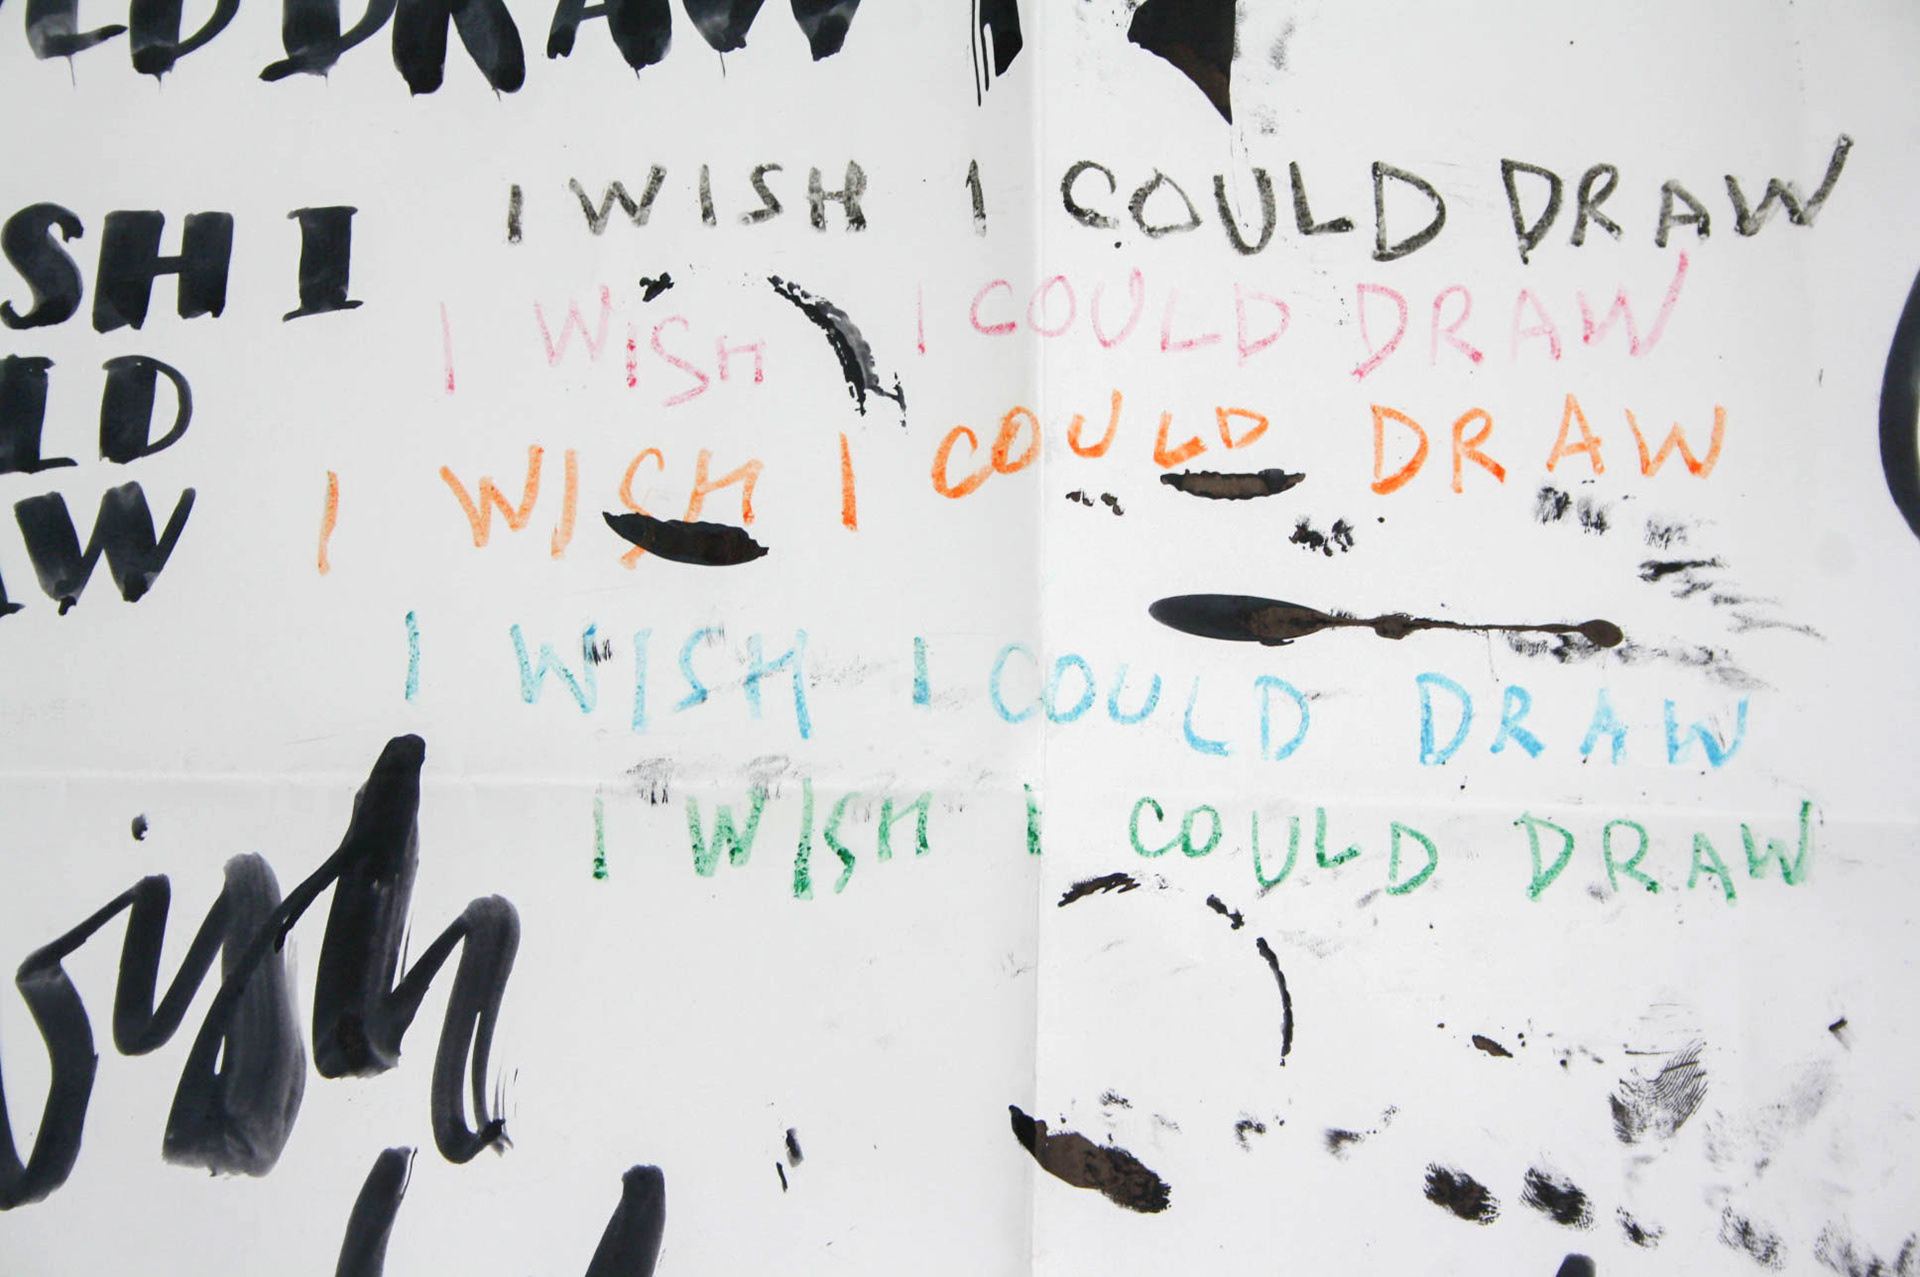 LD DRAW
I WISH I COULD DRAW
SH I
I WISH I COULD DRAW
LD
I WISH I COULD DRAW
AW
I WISH I COULD DRAW
I WISH I COULD DRAW
ish